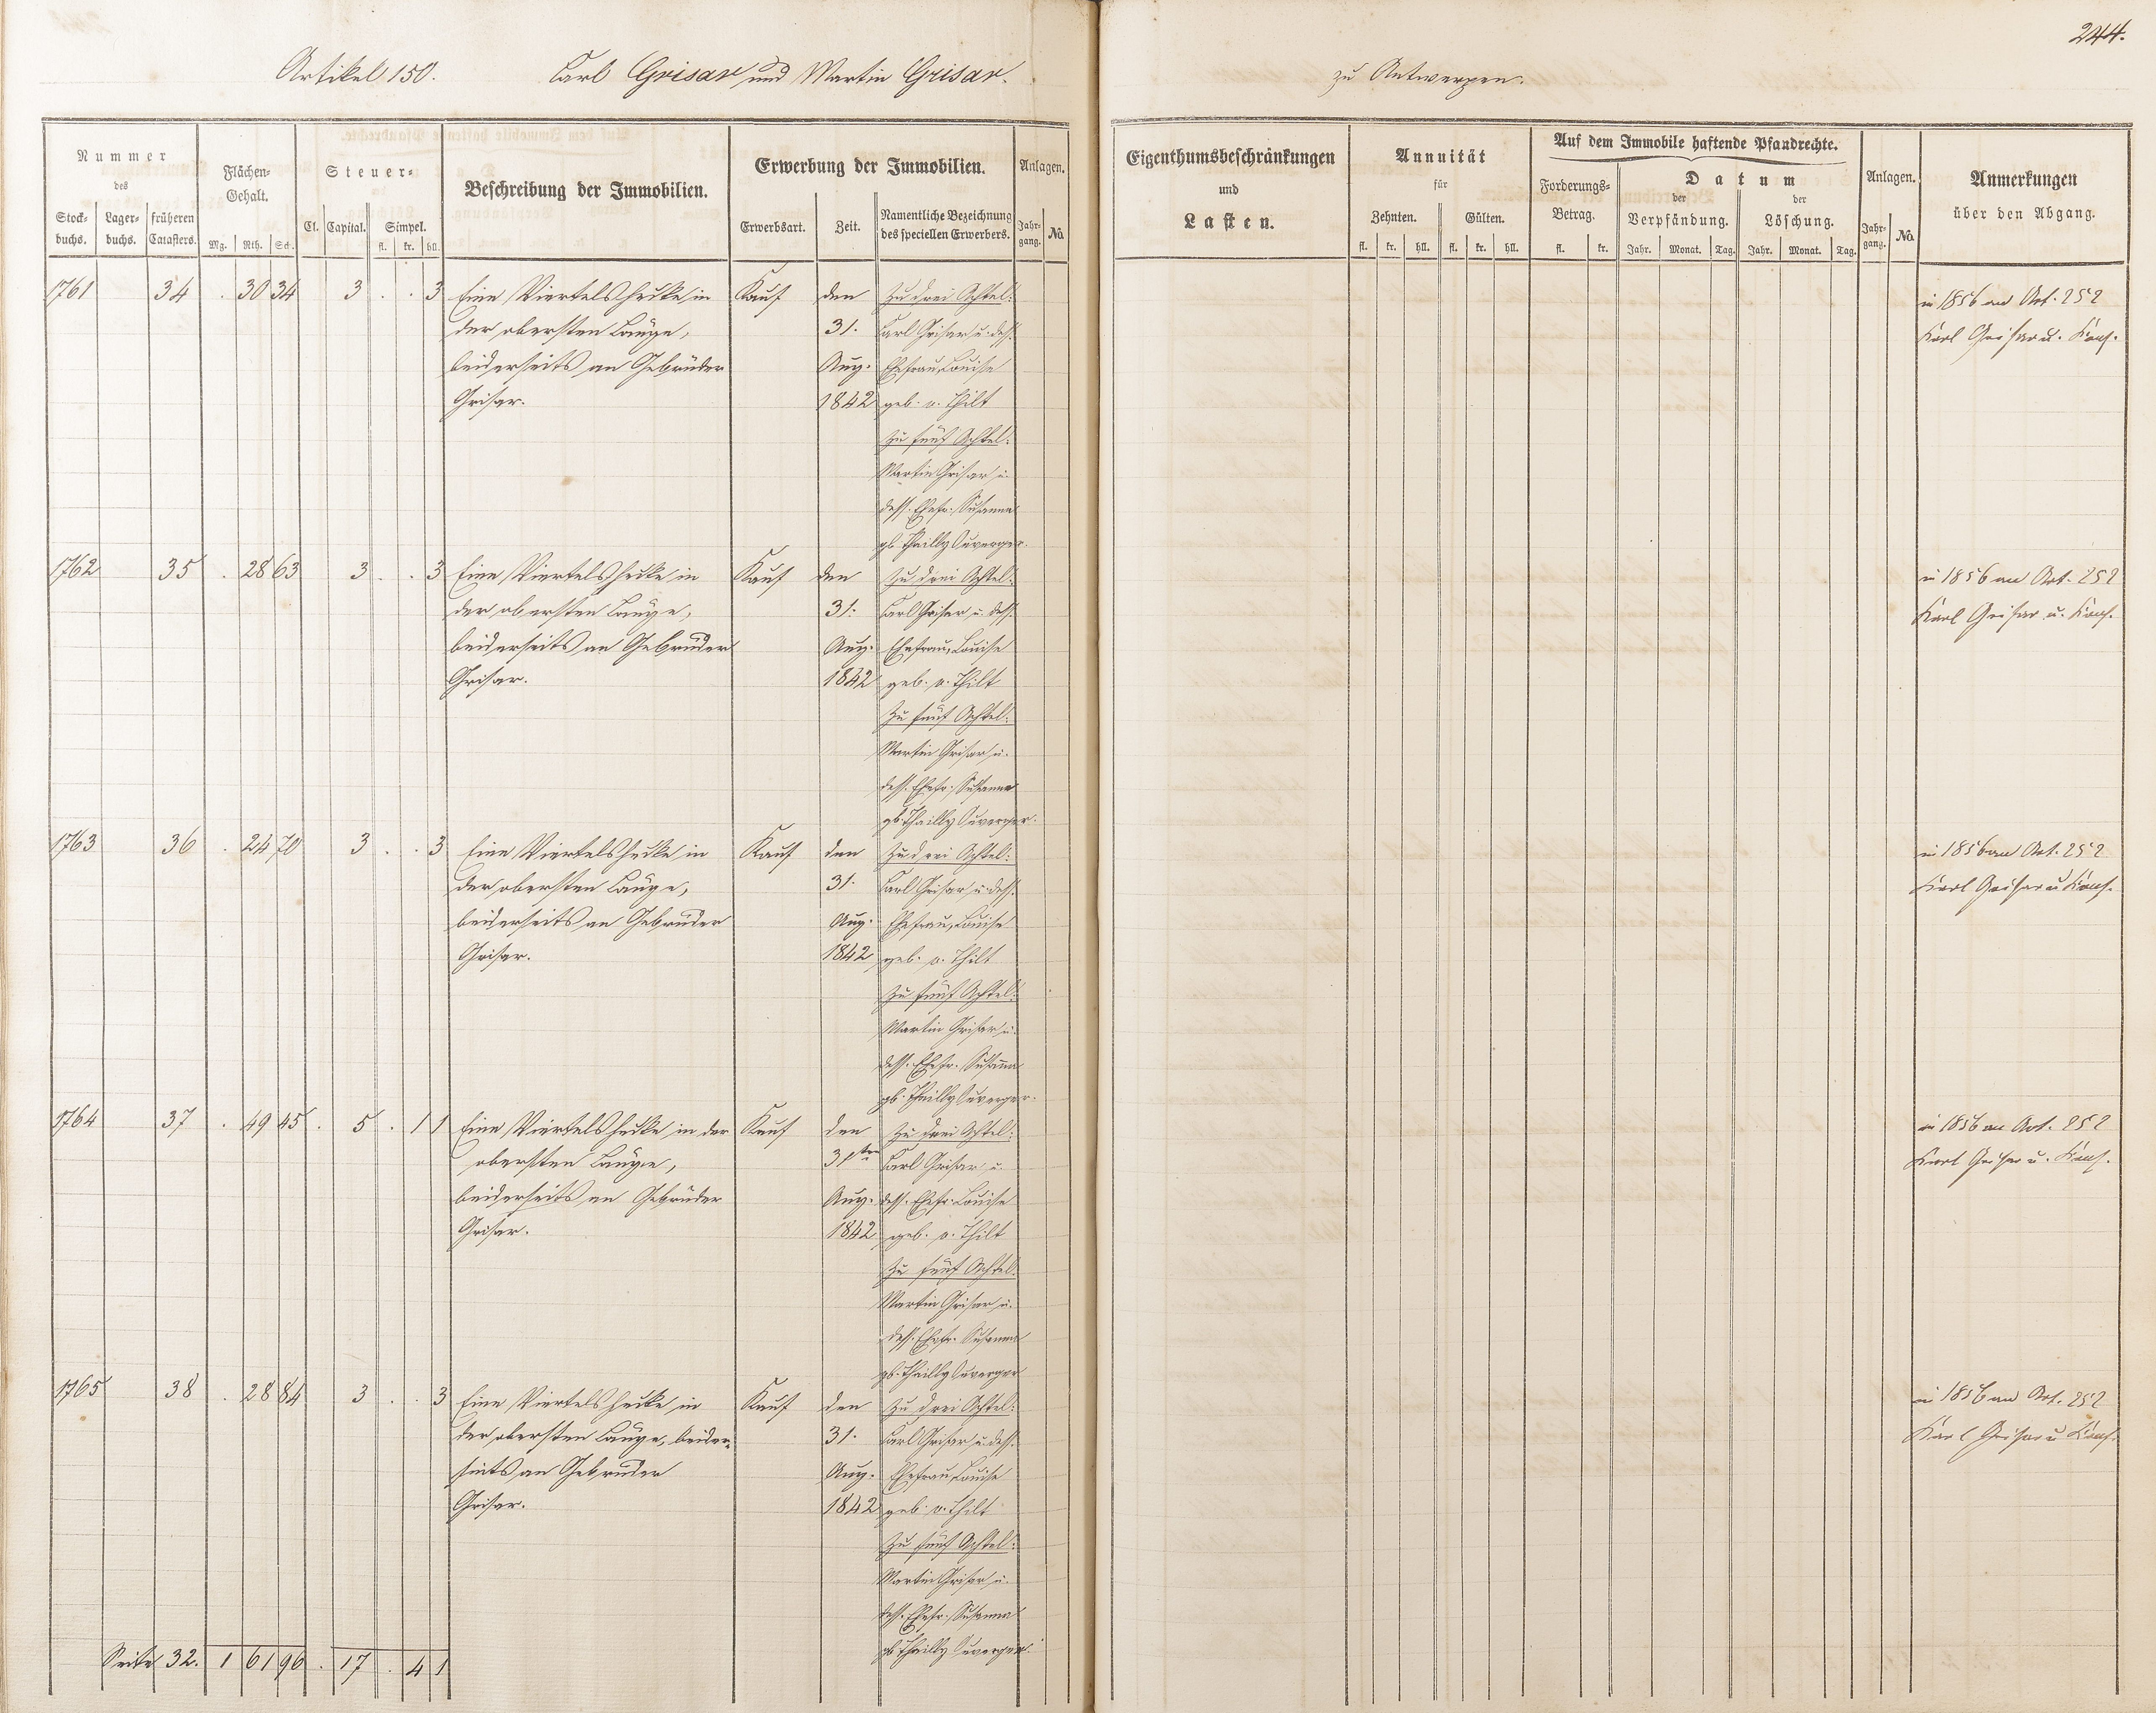 244.
Artikel 150. Carl Grisar und Martin Grisar. zu Antwerpen.
Nummer des
Stock-buchs. Lager-buchs. früheren Catasters.
Flächen-Gehalt.
Mg. Rth. Sch.
Steuer-
Cl. Capital. Simpel.
fl. kr. hll.
Beschreibung der Immobilien.
Erwerbung der Immobilien.
Erwerbsart. Zeit. Namentliche Bezeichnung des speciellen Erwerbers.
Anlagen.
Jahr-gang. No.
Eigenthumsbeschränkungen
und
Lasten.
Annuität
für
Zehnten. Gülten.
fl. kr. hll. fl. kr. hll.
Auf dem Immobile haftende Pfandrechte.
Forderungs-Betrag.
fl. kr.
Datum
der Verpfändung. der Löschung.
Jahr. Monat. Tag. Jahr. Monat. Tag.
Anlagen.
Jahr-gang. No.
Anmerkungen
über den Abgang.
1761 34 . 30 34 3 . . 3 Eine Viertelshecke in Kauf den zu drei Achtel: in 1856 an Art. 252
der obersten Lauge, 31. Carl Grisar u. dess. Karl Grisar u. Kons.
beiderseits an Gebrüder Aug. Ehefrau, Louise
Grisar. 1842 geb. v. Thilt
zu fünf Achtel:
Martin Grisar u.
dess. Ehefr. Susanna
gb.
1762 35 . 28 63 3 . . 3 Eine Viertelshecke in Kauf den zu drei Achtel: in 1856 an Art. 252
der obersten Lauge, 31. Carl Grisar u. dess. Karl Grisar u. Kons.
beiderseits an Gebrüder Aug. Ehefrau, Louise
Grisar. 1842 geb. v. Thilt
zu fünf Achtel:
Martin Grisar u.
dess. Ehefr. Susanna
gb.
1763 36 . 24 70 3 . . 3 Eine Viertelshecke in Kauf den zu drei Achtel: in 1856 an Art. 252
der obersten Lauge, 31. Carl Grisar u. dess. Karl Grisar u. Kons.
beiderseits an Gebrüder Aug. Ehefrau, Louise
Grisar. 1842 geb. v. Thilt
zu fünf Achtel:
Martin Grisar u.
dess. Ehefr. Susanna
gb.
1764 37 . 49 45 . 5 . 1 1 Eine Viertelshecke in der Kauf den zu drei Achtel: in 1856 an Art. 252
obersten Lauge, 31ten Carl Grisar u. Karl Grisar u. Kons.
beiderseits an Gebrüder Aug. dess. Ehefr. Louise
Grisar. 1842 geb. v. Thilt
zu fünf Achtel:
Martin Grisar u.
dess. Ehefr. Susanna
gb.
1765 38 . 28 84 3 . . 3 Eine Viertelshecke in Kauf den zu drei Achtel: in 1856 an Art. 252
der obersten Lauge, beider- 31. Carl Grisar u. dess. Karl Grisar u. Kons.
seits an Gebrüder Aug. Ehefrau, Louise
Grisar. 1842 geb. v. Thilt
zu fünf Achtel:
Martin Grisar u.
dess. Ehefr. Susanna
gb.
Seite 32. 1 61 96 . 17 . 4 1